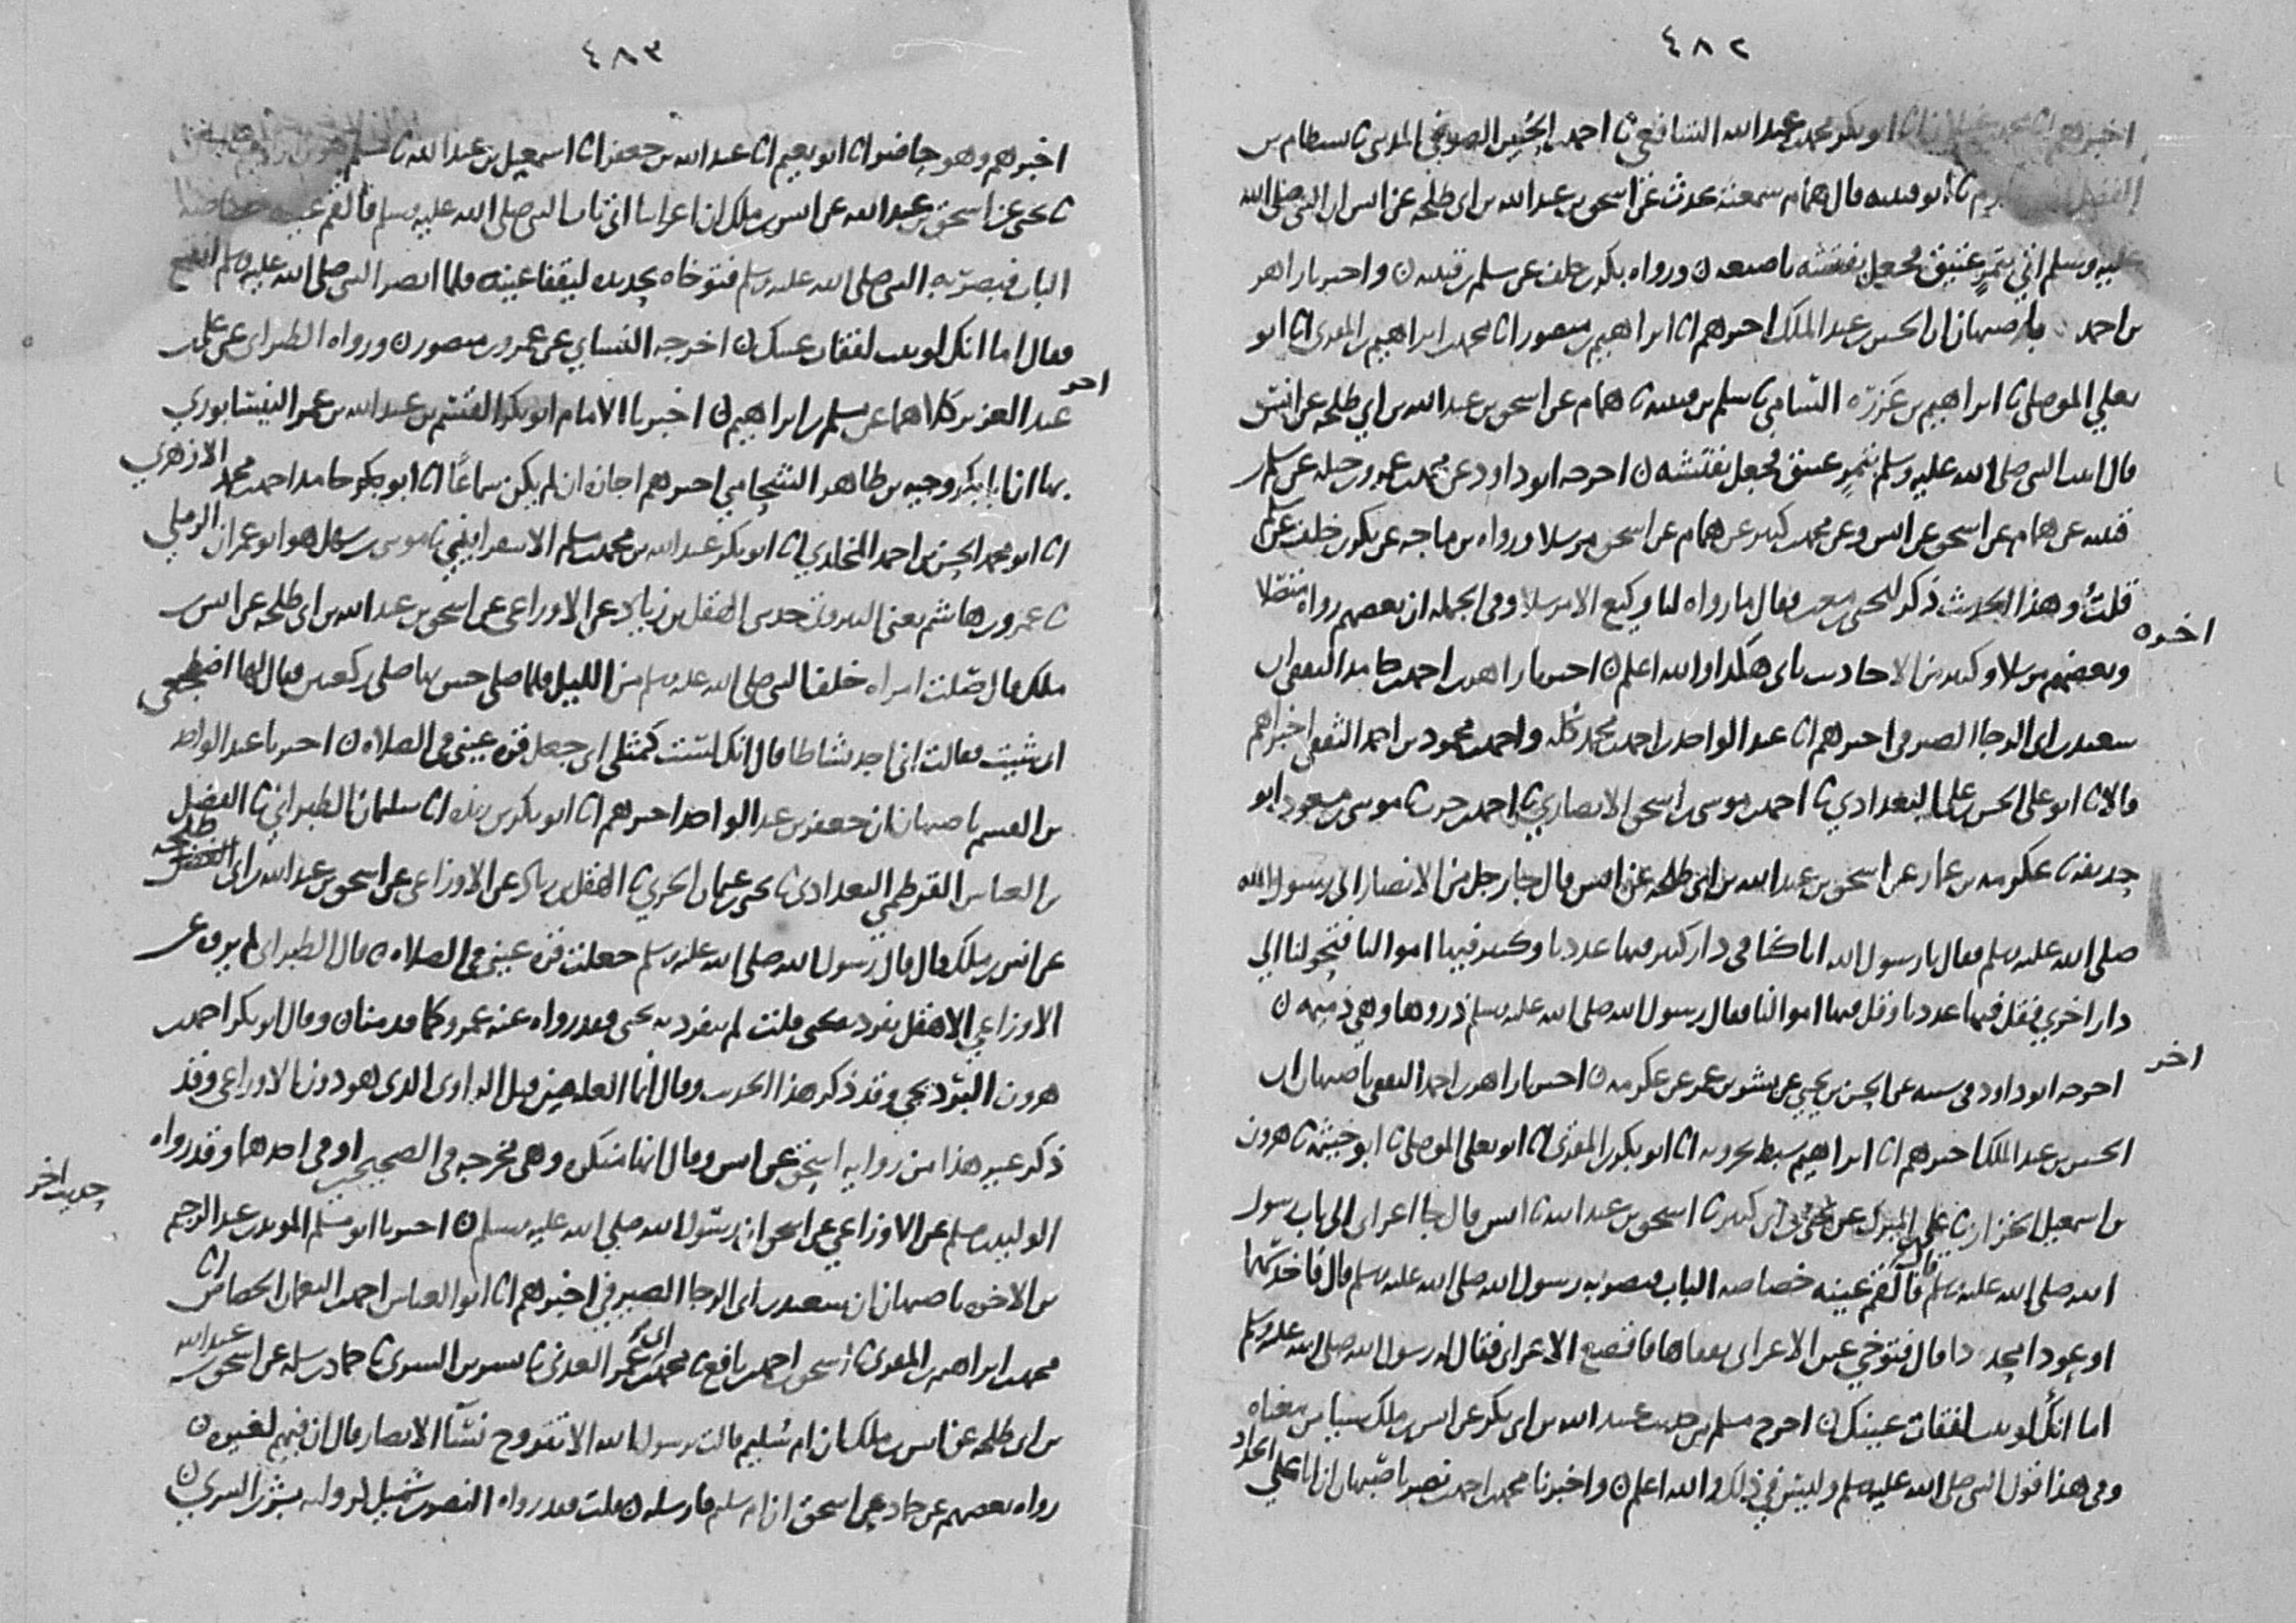 ٤٨٢
اخبرهم ابو بكر محمد بن عبد الله الشافعي ثا احمد بن الحسين الصوفي ثا بسطام بن
الفضل ثا ابو قتيبه قال همام سمعته يحدث عن اسحق بن عبد الله بن ابي طلحه عن انس ان النبي صلى الله
عليه وسلم اتي بتمر عتيق فجعل يفتشه باصبعه ورواه بكر بن خلف عن سلم بن قتيبه واخبرنا زاهر
بن احمد باصبهان ان الحسين بن عبد الملك اخبرهم انا ابراهيم بن منصور انا محمد بن ابراهيم بن المقرئ انا ابو
يعلي الموصلي ثا ابراهيم بن عرعرة الشامي ثا سلم بن قتيبه ثا همام عن اسحق بن عبد الله بن ابي طلحه عن انس
قال اتي النبي صلى الله عليه وسلم بتمر عتيق فجعل يفتشه اخرجه ابو داود عن محمد بن عمرو بن جبله عن سلم بن
قتيبه عن همام عن اسحق عن انس وعن محمد بن كثير عن همام عن اسحق مرسلا ورواه بن ماجه عن بكر بن خلف عن سلم
قلت وهذا الحديث ذكر ليحيى بن معين فقال ما رواه لنا وكيع الا مرسلا وفي الجمله ان بعضهم رواه متصلا
وبعضهم مرسلا وكثير من الاحاديث ياتي هكذا والله اعلم اخبرنا زاهر بن احمد بن حامد الثقفي ان
اخره
سعيد بن ابي الرجا الصيرفي اخبرهم انا عبد الواحد بن احمد بن محمد بكله واحمد بن محمود بن احمد الثقفي اخبراهم
قالا ثا ابو علي الحسن بن علي البغدادي ثا احمد بن موسى بن اسحق الانصاري ثا احمد بن حرب ثا موسى بن مسعود ابو
حذيفه ثا عكرمه بن عمار عن اسحق بن عبد الله بن ابي طلحه عن انس قال جا رجل من الانصار الى رسول الله
صلى الله عليه وسلم فقال يا رسول الله انا كنا في دار كثير فيها عددنا وكثير فيها اموالنا فتحولنا الى
دار اخري فقل فيها عددنا وقل فيها اموالنا فقال رسول الله صلى الله عليه وسلم ذروها وهي ذميمه
اخرجه ابو داود في سننه عن الحسن بن يحيى عن بشر بن عمر عن عكرمه اخبرنا زاهر بن احمد الثقفي باصبهان ان
اخر
الحسين بن عبد الملك اخبرهم انا ابراهيم سبط بحرويه انا ابو بكر بن المقرئ انا ابو يعلي الموصلي ثا ابو خيثمه ثا هرون
بن اسمعيل الخزاز ثا علي بن المبارك عن يحيى بن ابي كثير ثا اسحق بن عبد الله ثا انس قال جا اعرابي الى باب رسول
الله صلى الله عليه وسلم قال فالقم عينه خصاصه الباب فبصر به رسول الله صلى الله عليه وسلم قال فاخذ سهما
او عودا محددا قال فتوخي عين الاعرابي يفقاها فانقمع الاعرابي فقال له رسول الله صلى الله عليه وسلم
اما انك لو ثبت لفقات عينك اخرج مسلم من حديث عبيد الله بن ابي بكر عن انس بن ملك شيا من معناه
وفي هذا قول النبي صلى الله عليه وسلم وليس في ذلك والله اعلم واخبرنا محمد بن احمد بن نصر باصبهان ان ابا علي الحداد
٤٨٣
اخبرهم وهو حاضر انا ابو نعيم انا عبد الله بن جعفر انا اسمعيل بن عبد الله ثا مسلم
ثا يحيى عن اسحق بن عبد الله عن انس بن ملك ان اعرابيا اتى باب النبي صلى الله عليه وسلم فالقم عينه خصاصه
الباب فبصر به النبي صلى الله عليه وسلم فتوخاه بحديده ليفقا عينه فلما ابصر النبي صلى الله عليه وسلم انقمع
فقال اما انك لو ثبت لفقات عينك اخرجه النساي عن عمرو بن منصور ورواه الطبراني عن علي بن
عبد العزيز كلاهما عن مسلم بن ابراهيم اخبرنا الامام ابو بكر القسم بن عبد الله بن عمر النيسابوري
اخر
بها ان ابا بكر وجيه بن طاهر الشحامي اخبرهم اجازه ان لم يكن سماعا انا ابو بكر حامد احمد بن محمد الازهري
انا ابو محمد الحسن بن احمد المخلدي انا ابو بكر عبد الله بن محمد بن مسلم الاسفراييني ثا موسى بن سهل هو ابو عمران الرملي
ثا عمرو بن هاشم يعني البيروتي حدثني الهقل بن زياد عن الاوزاعي عن اسحق بن عبد الله بن ابي طلحه عن انس بن
ملك قال صلت امراه خلف النبي صلى الله عليه وسلم من الليل فلما صلى حس بها صلى ركعتين فقال لها اضطجعي
ان شيت فقالت اني اجد نشاطا قال انك لست كمثلي اني جعل قره عيني في الصلاه اخبرنا عبد الواحد
بن القسم باصبهان ان جعفر بن عبد الواحد اخبرهم انا ابو بكر بن ريذه انا سليمان الطبراني ثا الفضل
بن العباس القرطمي البغدادي ثا يحيى بن عثمان الحربي ثا الهقل بن زياد عن الاوزاعي عن اسحق بن عبد الله بن ابي طلحه
عن انس بن ملك قال قال رسول الله صلى الله عليه وسلم جعلت قره عيني في الصلاه قال الطبراني لم يروه عن
الاوزاعي الا هقل تفرد به يحيى قلت لم يتفرد به يحيى فقد رواه عنه عمرو كما قدمناه وقال ابو بكر احمد بن
هرون البرديجي وقد ذكر هذا الحديث وقال انما العله من قبل الراوي الذي هو دون الاوزاعي وقد
ذكر غير هذا من روايه اسحق عن انس وقال انها منكره وهي مخرجه في الصحيحين او في احدهما وقد رواه
الوليد بن مسلم عن الاوزاعي عن اسحق ان رسول الله صلى الله عليه وسلم اخبرنا ابو مسلم المويد بن عبد الرحيم
حديث اخر
بن الاخوه باصبهان ان سعيد بن ابي الرجا الصيرفي اخبرهم انا ابو العباس احمد بن النعمان الحصاص انا
محمد بن ابراهيم بن المقرئ ثا اسحق بن احمد بن نافع ثا محمد بن ابي عمر العدني ثا بشر بن السري ثا حماد بن سلمه عن اسحق بن عبد الله
بن ابي طلحه عن انس بن ملك ان ام سليم قالت يرسول الله الا تتزوج نسآ الانصار قال ان فيهم لغيره
رواه بعضهم عن حماد عن اسحق ان ام سليم فارسله قلت فقد رواه النضر بن شميل لروايه بشر بن السري